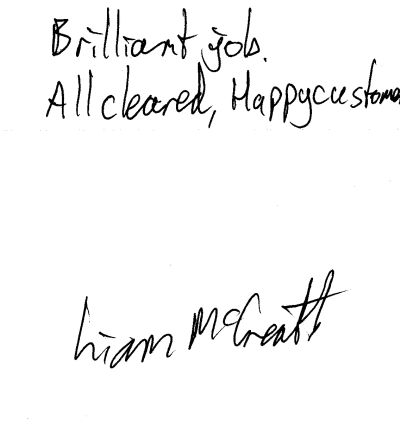 Brilliant job.
All cleared, Happy custome
Liam McCreatt